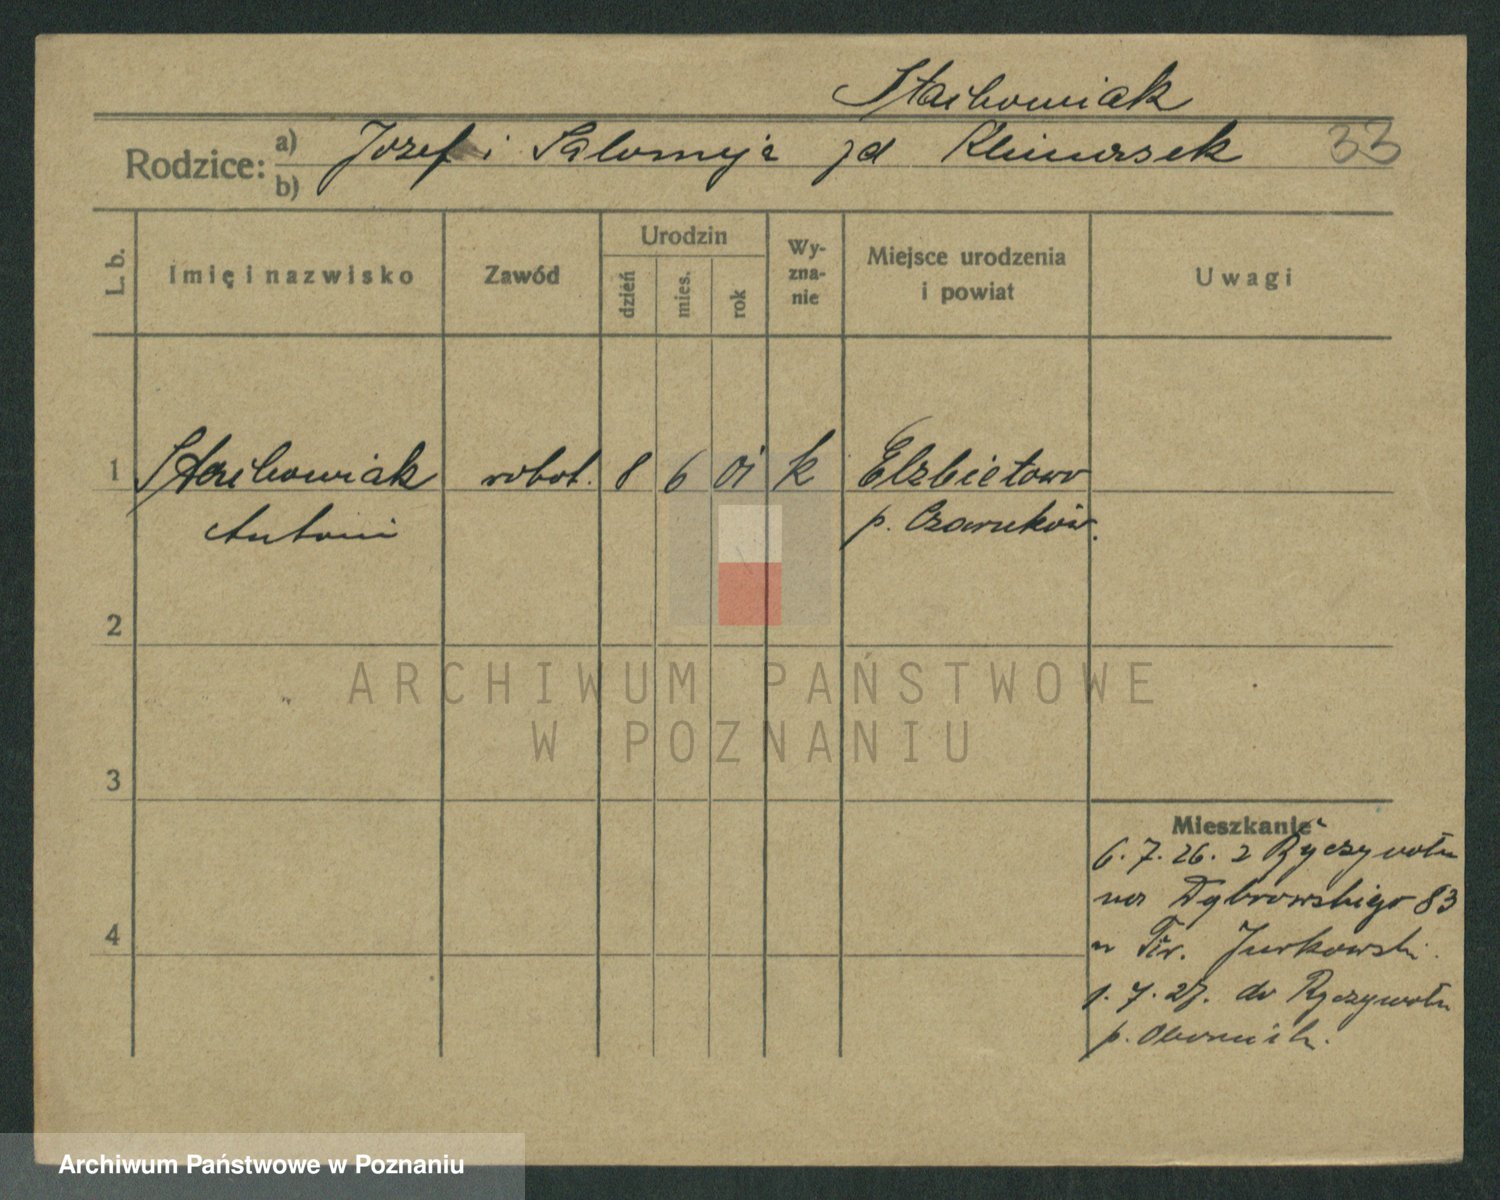 Stachowiak
Rodzice: a) b) Józef i Salomeja zd Klimaszek 33
L. b. Imię i nazwisko Zawód Urodzin dzień mies. rok Wy-zna-nie Miejsce urodzenia i powiat Uwagi
1 Stachowiak robot. 8 6 01 k Elzbietowo
Antoni p. Czarnków.
2
ARCHIWUM PAŃSTWOWE
W POZNANIU
3
Mieszkanie
6. 7. 26. z Ryczywołu
na Dąbrowskiego 83
4
u Jurkowski.
1. 7. 27. do Ryczywołu
p. Obornik.
Archiwum Państwowe w Poznaniu